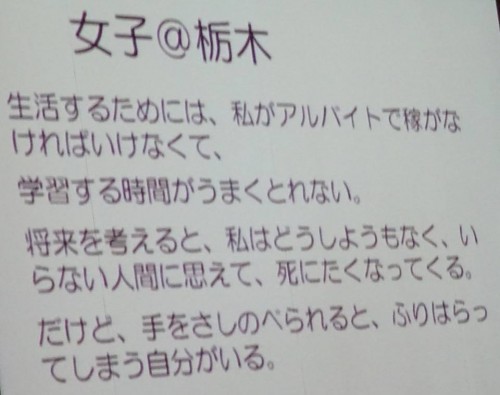 女子@栃木
生活するためには、私がアルバイトで稼がな
ければいけなくて、
学習する時間がうまくとれない。
将来を考えると、私はどうしようもなく、い
らない人間に思えて、死にたくなってくる。
だけど、手をさしのべられると、ふりはらっ
てしまう自分がいる。